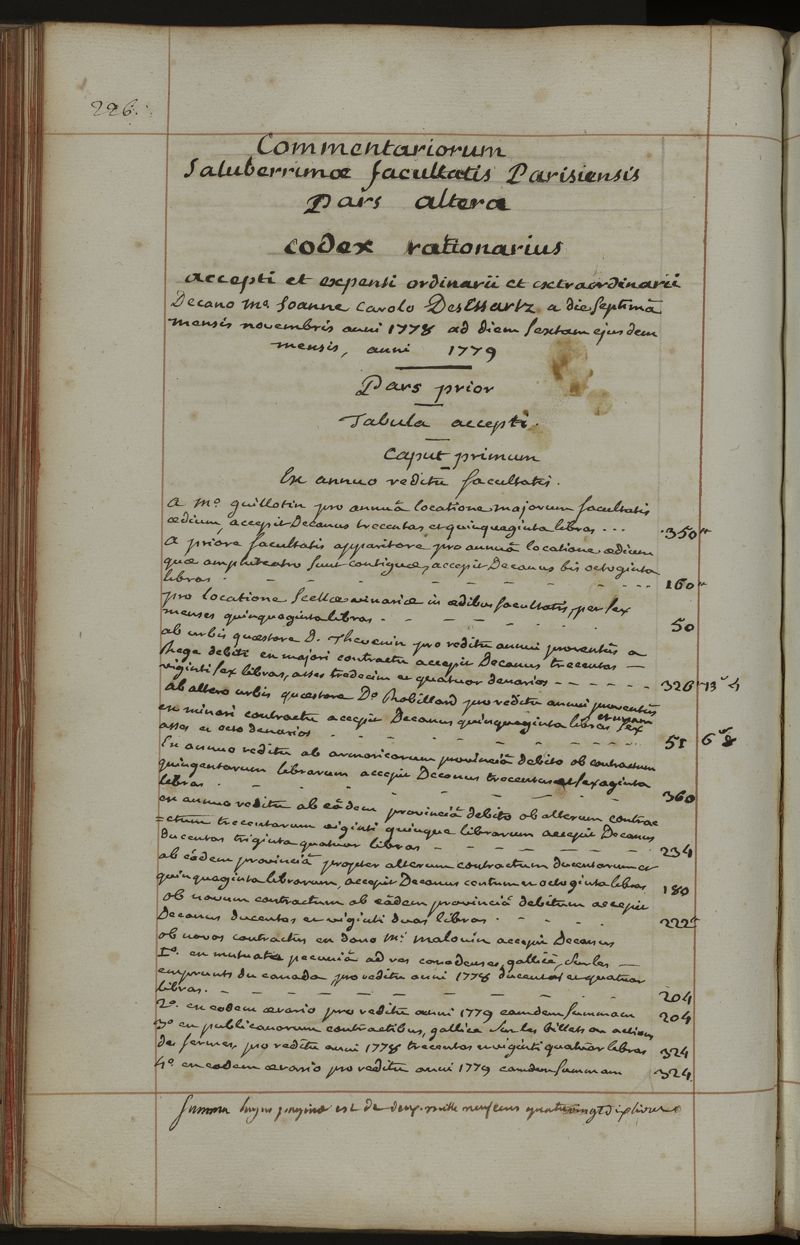 226.
Commentariorum
Saluberrimæ facultatis Parisiensis
Pars altera
codex rationarius
accepti et expensi ordinarii et extraordinarii
Decano mo. Joanne Carolo DesEssartz a die septimâ
mensis novembris anni 1778 ad diem sextam ejusdem
mensis, anni 1779
Pars prior
Tabula accepti.
Caput primum
Ex annuo reditu facultatis.
A Mo. guillotin pro annuâ locatione majorum facultatis
ædium, accepit Decanus trecentas et quinquaginta libras . . . 350 tt
A priore facultatis apparitore pro annuâ locatione ædium
quæ amphiteatro sunt contiguæ, accepit Decanus bis octoginta
libras . - - - - - - - 160 tt
pro locatione Scellæ vinariæ in ædibus facultatis, per sex
menses quinquaginta libras . - - - - 50
ab urbis quæstore D. Thevenin pro reditu annui proventûs a
Rege debiti ex majori contractu accepit Decanus trecentas —
viginti sex libras, asses tredecim et quatuor denarios - - - - - - 326 13 4
Ab altero urbis quæstore Do. Robillard pro reditu annui proventûs
ex minori contractu accepit Decanus quinquaginta et unam libras sex
asses et octo denarios . - - - - - - - 51 6 8
Ex annuo reditu ab armoricorum provinciâ debito ob contractum
quingentarum librarum accepit Decanus trecentas et sexaginta
libras . - - - - - - - 360
ex annuo reditu ab eâdem provinciâ debito ob alterum contrac
=tum trecentarum viginti quinque librarum accepit Decanus
ducentas triginta quatuor libras - - - - - - - 234
ab eâdem provinciâ propter alterum contractum ducentarum et
quinquaginta librarum, accepit Decanus centum et octoginta libras 180
ob novum contractum ab eâdem provinciâ debitum accepit
Decanus ducentas et viginti duas libras . - - - - 222 tt
ob novos contractus ex dono Mi. Malouin accepit Decanus
1o. ex mutuatâ pecuniâ ad res canadenses, gallicè, sur les —
emprunts du canada, pro reditu anni 1778 ducentas et quatuor
libras . - - - - - - - 204
2o. ex eodem ærario pro reditu anni 1779 eamdem summam 204
3o ex publicanorum contractibus, gallicè sur les billets ou actions
des fermes, pro reditu anni 1778 trecentas viginti quatuor libras 324
4o. ex eodem ærario pro reditu anni 1779 eamdem summam 324
Summa hujus paginæ est de deux mille neuf cens quatrevingt dix livres